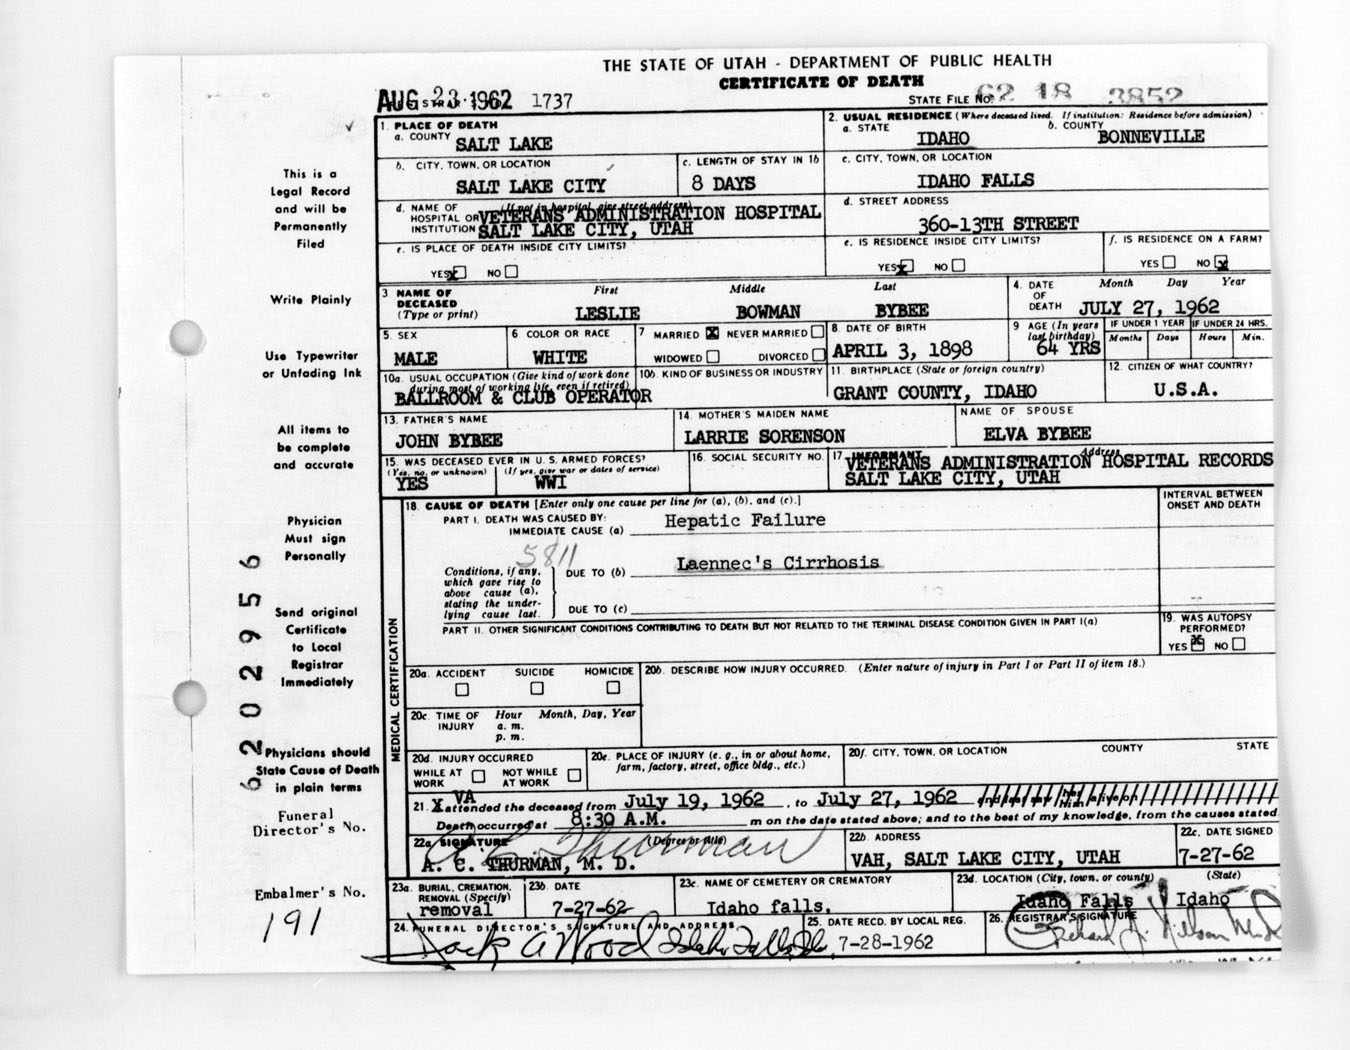 THE STATE OF UTAH - DEPARTMENT OF PUBLIC HEALTH
CERTIFICATE OF DEATH
AUG 23 1962 1737
STATE FILE NO. 62 18 3852
This is a
Legal Record
and will be
Permanently
Filed
Write Plainly
Use Typewriter
or Unfading Ink
All items to
be complete
and accurate
Physician
Must sign
Personally
Send original
Certificate
to Local
Registrar
Immediately
Physicians should
State Cause of Death
in plain terms
Funeral
Director's No.
Embalmer's No.
191
62029 56
1. PLACE OF DEATH
a. COUNTY SALT LAKE
2. USUAL RESIDENCE (Where deceased lived. If institution: Residence before admission)
a. STATE IDAHO b. COUNTY BONNEVILLE
b. CITY, TOWN, OR LOCATION
SALT LAKE CITY
c. LENGTH OF STAY IN 1b
8 DAYS
c. CITY, TOWN, OR LOCATION
IDAHO FALLS
d. NAME OF (If not in hospital, give street address)
HOSPITAL OR VETERANS ADMINISTRATION HOSPITAL
INSTITUTION SALT LAKE CITY, UTAH
d. STREET ADDRESS
360-13TH STREET
e. IS PLACE OF DEATH INSIDE CITY LIMITS?
YES X NO
e. IS RESIDENCE INSIDE CITY LIMITS?
YES X NO
f. IS RESIDENCE ON A FARM?
YES NO X
3 NAME OF DECEASED (Type or print)
First Middle Last
LESLIE BOWMAN BYBEE
4. DATE OF DEATH Month Day Year
JULY 27, 1962
5. SEX
MALE
6 COLOR OR RACE
WHITE
7 MARRIED X NEVER MARRIED
WIDOWED DIVORCED
8. DATE OF BIRTH
APRIL 3, 1898
9 AGE (In years last birthday)
64 YRS
IF UNDER 1 YEAR IF UNDER 24 HRS.
Months Days Hours Min.
10a. USUAL OCCUPATION (Give kind of work done
during most of working life, even if retired)
BALLROOM & CLUB OPERATOR
10b. KIND OF BUSINESS OR INDUSTRY
11. BIRTHPLACE (State or foreign country)
GRANT COUNTY, IDAHO
12. CITIZEN OF WHAT COUNTRY?
U.S.A.
13. FATHER'S NAME
JOHN BYBEE
14. MOTHER'S MAIDEN NAME
LARRIE SORENSON
NAME OF SPOUSE
ELVA BYBEE
15. WAS DECEASED EVER IN U. S. ARMED FORCES?
(Yes, no, or unknown) (If yes, give war or dates of service)
YES WWI
16. SOCIAL SECURITY NO.
17 INFORMANT Address
VETERANS ADMINISTRATION HOSPITAL RECORDS
SALT LAKE CITY, UTAH
MEDICAL CERTIFICATION
18. CAUSE OF DEATH [Enter only one cause per line for (a), (b), and (c).]
INTERVAL BETWEEN
ONSET AND DEATH
PART I. DEATH WAS CAUSED BY:
IMMEDIATE CAUSE (a) Hepatic Failure
5811
Conditions, if any,
which gave rise to
above cause (a),
stating the under-
lying cause last.
DUE TO (b) Laennec's Cirrhosis
DUE TO (c)
PART II. OTHER SIGNIFICANT CONDITIONS CONTRIBUTING TO DEATH BUT NOT RELATED TO THE TERMINAL DISEASE CONDITION GIVEN IN PART I(a)
19. WAS AUTOPSY
PERFORMED?
YES X NO
20a. ACCIDENT SUICIDE HOMICIDE
20b. DESCRIBE HOW INJURY OCCURRED. (Enter nature of injury in Part I or Part II of item 18.)
20c. TIME OF INJURY Hour Month, Day, Year
a. m.
p. m.
20d. INJURY OCCURRED
WHILE AT WORK NOT WHILE AT WORK
20e. PLACE OF INJURY (e. g., in or about home,
farm, factory, street, office bldg., etc.)
20f. CITY, TOWN, OR LOCATION COUNTY STATE
21. X VA attended the deceased from July 19, 1962, to July 27, 1962 and last saw her him alive on
Death occurred at 8:30 A.M. m on the date stated above; and to the best of my knowledge, from the causes stated
22a. SIGNATURE (Degree or title)
A C Thurman
A. C. THURMAN, M. D.
22b. ADDRESS
VAH, SALT LAKE CITY, UTAH
22c. DATE SIGNED
7-27-62
23a. BURIAL, CREMATION,
REMOVAL (Specify)
removal
23b. DATE
7-27-62
23c. NAME OF CEMETERY OR CREMATORY
Idaho falls,
23d. LOCATION (City, town, or county) (State)
Idaho Falls Idaho
24. FUNERAL DIRECTOR'S SIGNATURE AND ADDRESS
Jack A Wood Idaho Falls Ida.
25. DATE RECD. BY LOCAL REG.
7-28-1962
26. REGISTRAR'S SIGNATURE